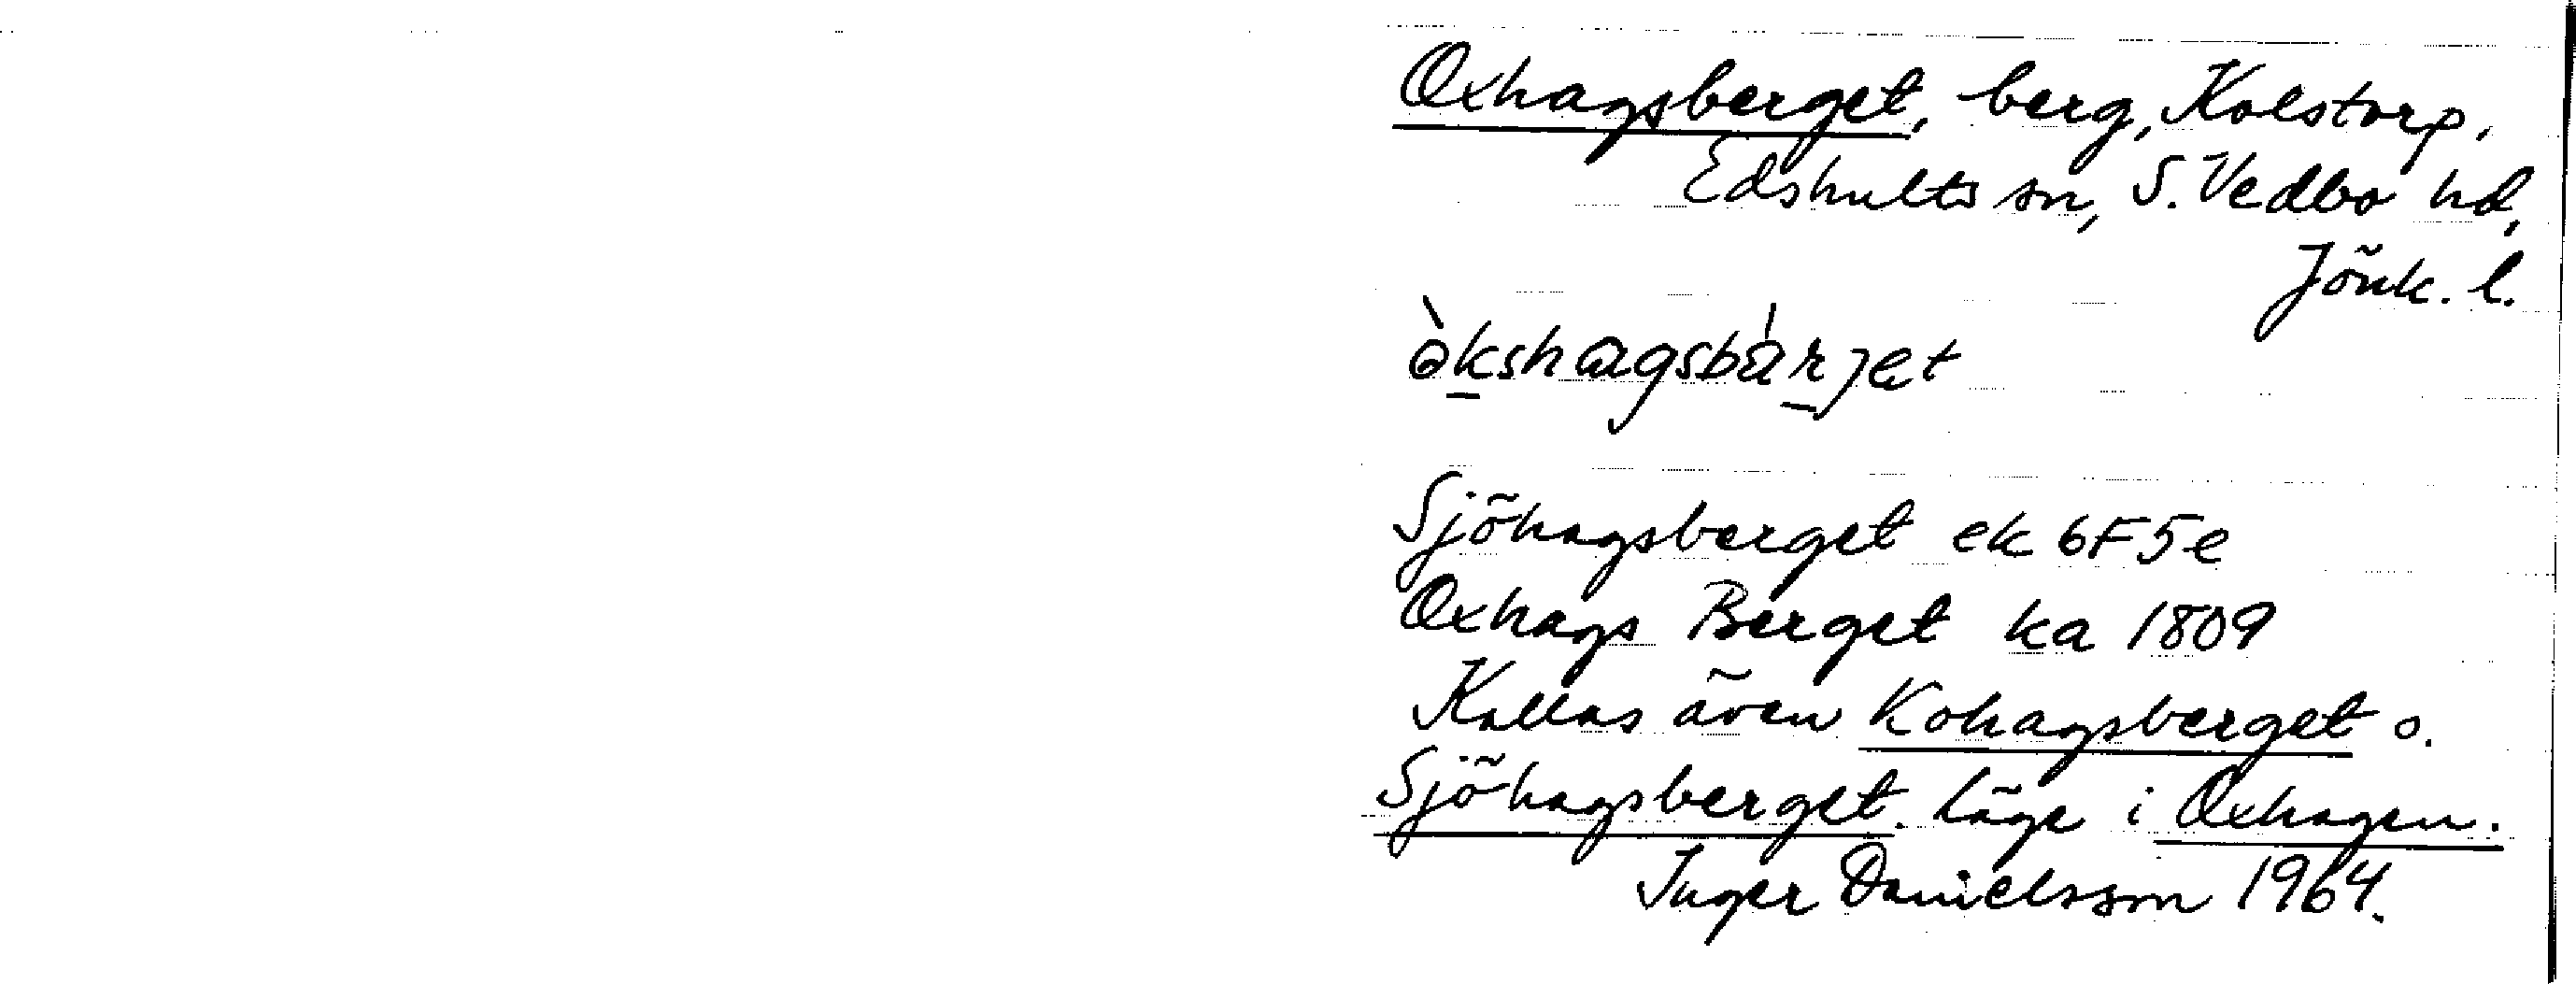 Oxhagsberget, berg, Kolstorp,
Edshults sn, S. Vedbo hd,
Jönk. l.
Sjöhagsberget ek 6F5e
Oxhags Berget ka 1809
Kallas även Kohagsberget o.
Sjöhagsberget. Läge i Oxhagen.
Inger Danielsson 1964.